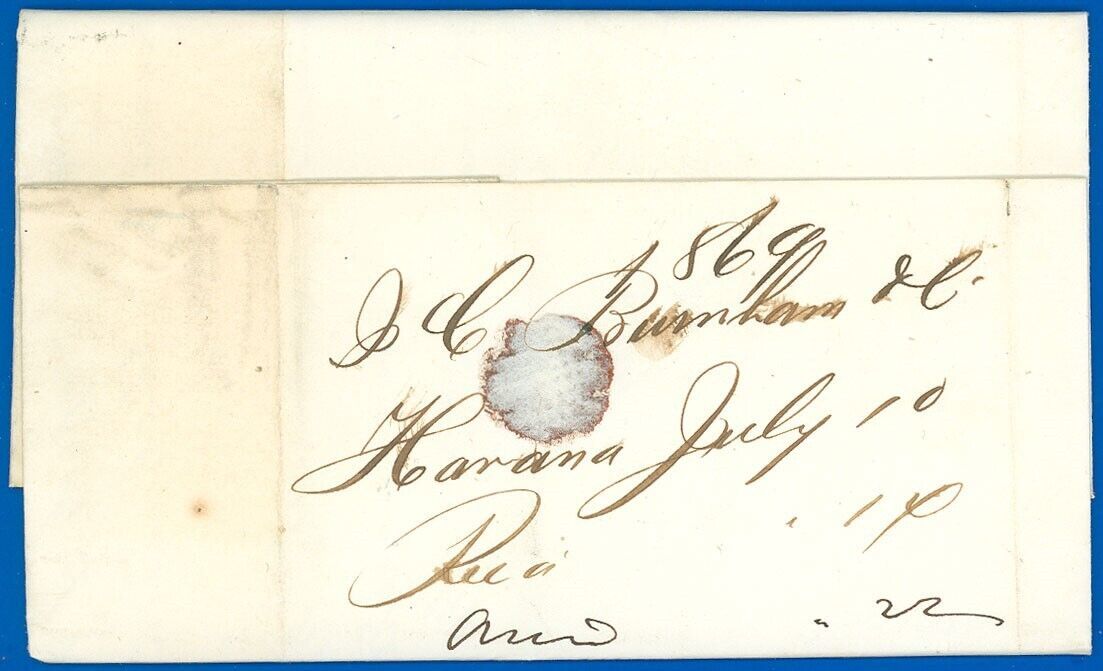 1869
J C Burnham & C.
Havana July 10
Rec'd " 14
Ans'd " 22